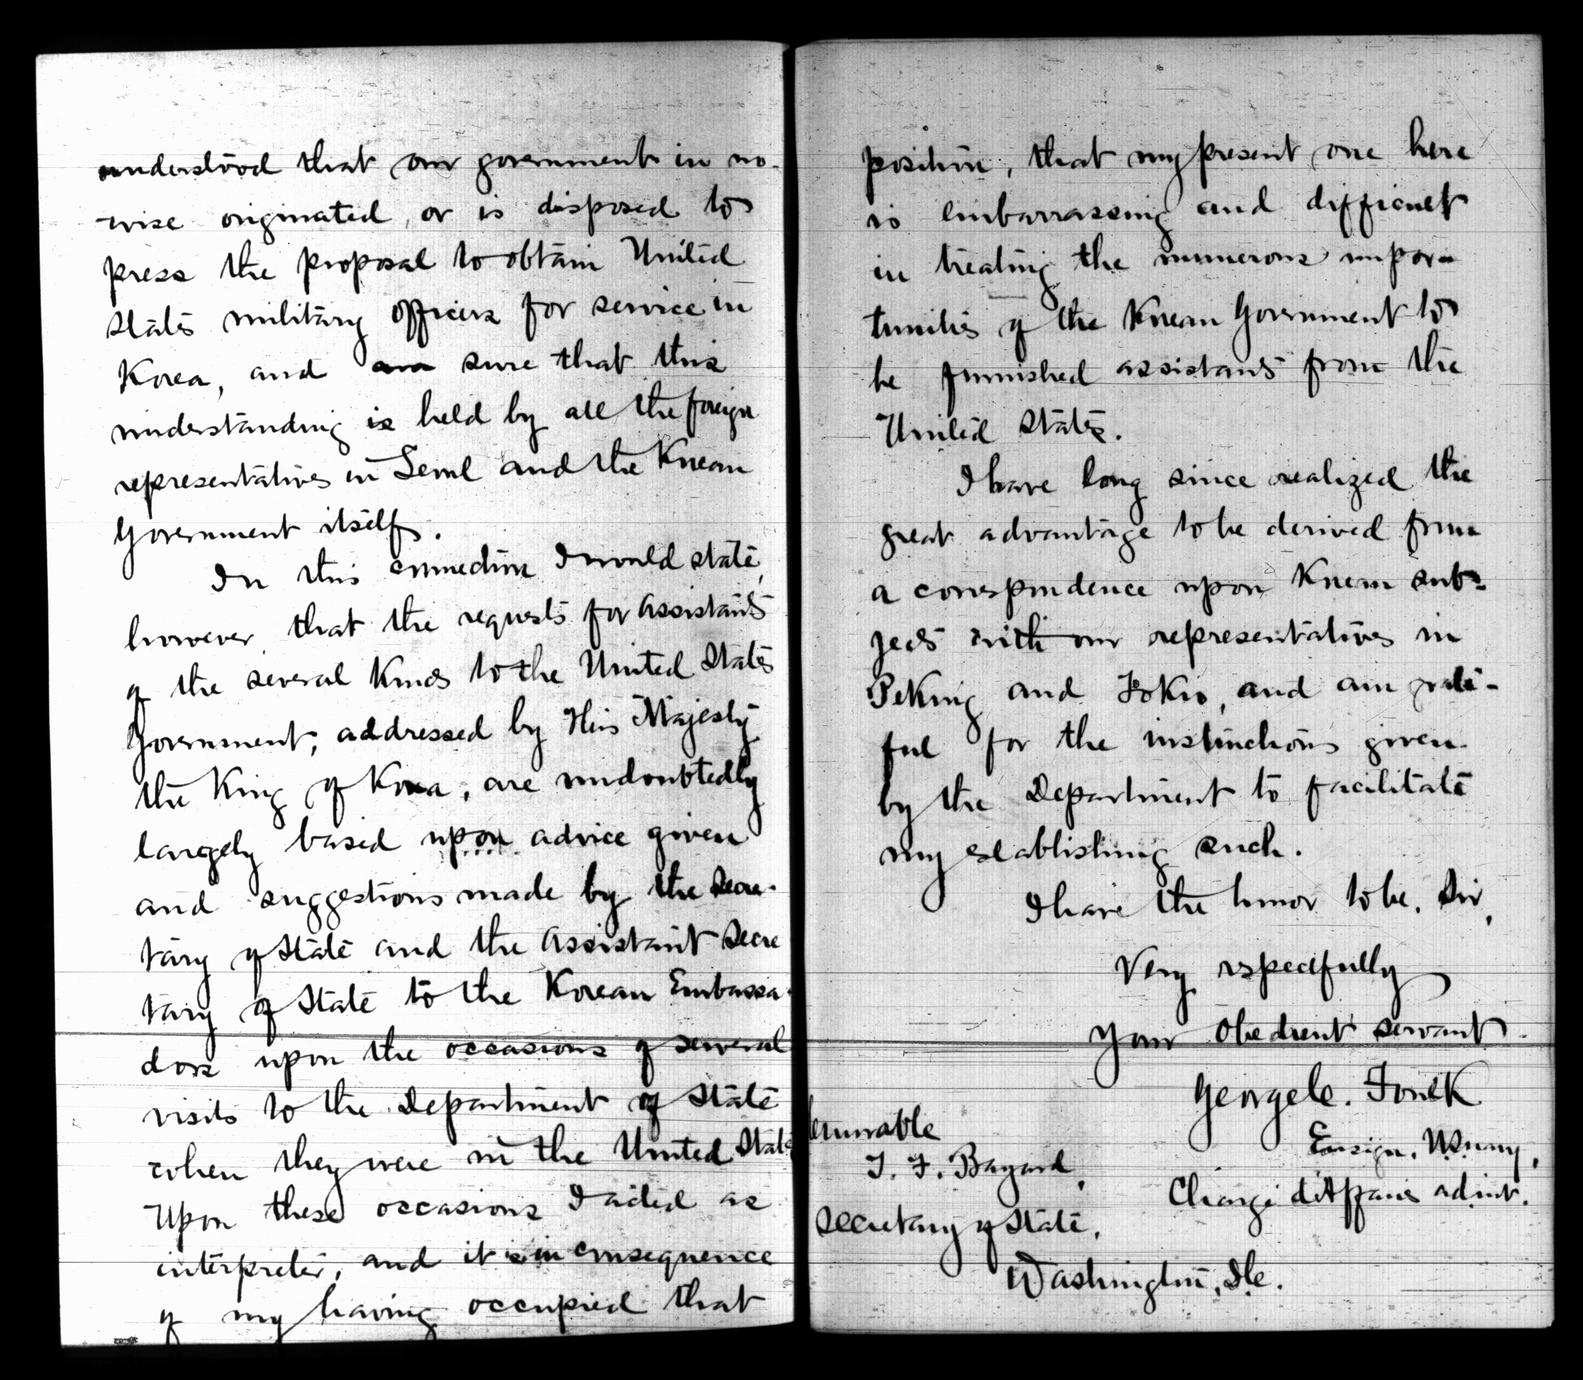 understood that our government in no-
wise originated, or is disposed to
press the proposal to obtain United
States military officers for service in
Korea, and am sure that this
understanding is held by all the foreign
representatives in Seoul and the Korean
Government itself.
In this connection I would state,
however, that the requests for assistants
of the several kinds to the United States
Government, addressed by His Majesty
the King of Korea, are undoubtedly
largely based upon advice given
and suggestions made by the Secre-
tary of State and the Assistant Secre
tary of State to the Korean Embassa-
dors upon the occasions of several
visits to the Department of State
when they were in the United States
Upon these occasions I acted as
interpreter, and it is in consequence
of my having occupied that
position, that my present one here
is embarrassing and difficult
in treating the numerous impor-
tunities of the Korean Government to
be furnished assistants from the
United States.
I have long since realized the
great advantage to be derived from
a correspondence upon Korean sub-
jects with our representatives in
Peking and Tokio, and am grate-
ful for the instructions given
by the Department to facilitate
my establishing such.
I have the honor to be, Sir,
Very respectfully
Your obedient servant
George C. Foulk
Ensign, U.S. Navy,
Chargé d'Affaires ad int.
Honorable
T. F. Bayard,
Secretary of State,
Washington, D.C.